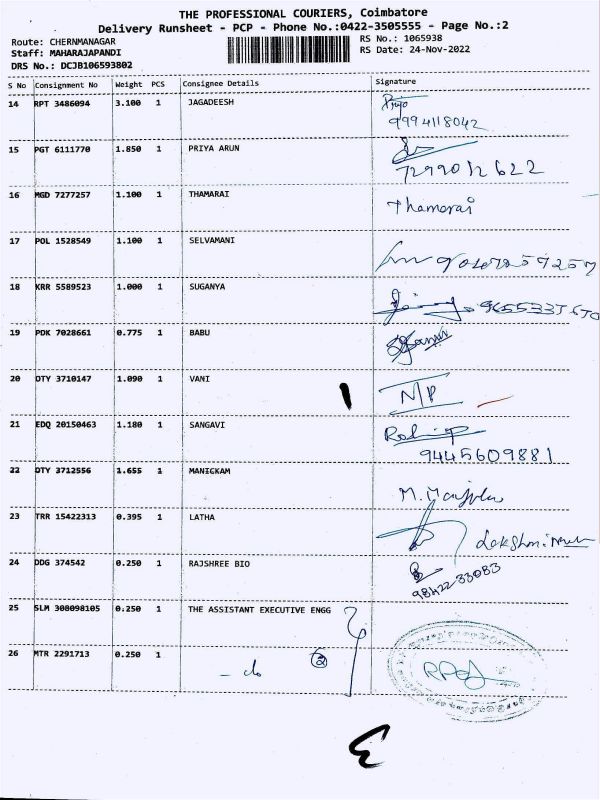 THE PROFESSIONAL COURIERS, Coimbatore
Delivery Runsheet - PCP - Phone No.:0422-3505555 - Page No.:2
Route: CHERNMANAGAR
RS No.: 1065938
Staff: MAHARAJAPANDI
RS Date: 24-Nov-2022
DRS No.: DCJB106593802
S No Consignment No Weight PCS Consignee Details Signature
14 RPT 3486094 3.100 1 JAGADEESH Priya
9994118042
15 PGT 6111770 1.850 1 PRIYA ARUN
7299012622
16 MGD 7277257 1.100 1 THAMARAI Thamarai
17 POL 1528549 1.100 1 SELVAMANI
18 KRR 5589523 1.000 1 SUGANYA
19 PDK 7028661 0.775 1 BABU
20 OTY 3710147 1.090 1 VANI N/P
21 EDQ 20150463 1.180 1 SANGAVI
9445609881
22 OTY 3712556 1.655 1 MANICKAM
23 TRR 15422313 0.395 1 LATHA
24 DDG 374542 0.250 1 RAJSHREE BIO
98422 33083
25 SLM 308098105 0.250 1 THE ASSISTANT EXECUTIVE ENGG
26 MTR 2291713 0.250 1 - do 2